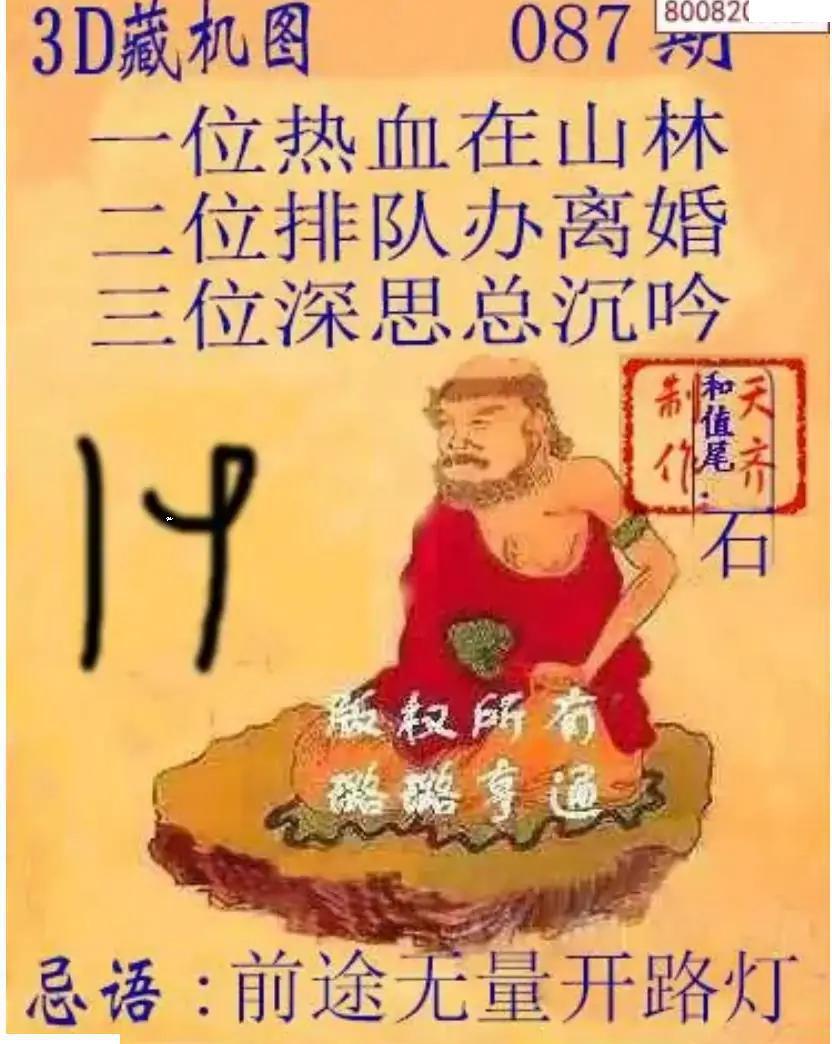 80082
3D藏机图 087期
一位热血在山林
二位排队办离婚
三位深思总沉吟
天齐
制作
和值尾:
石
版权所有
璐璐亨通
忌语:前途无量开路灯